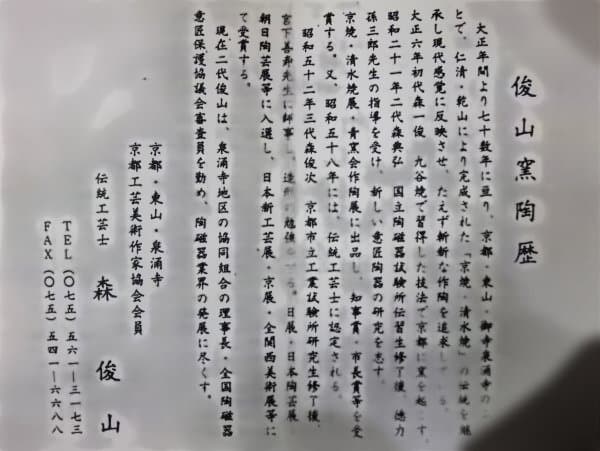 俊山窯陶歴
大正年間より七十数年に亘り、京都・東山・御寺泉涌寺の
とで、仁清・乾山により完成された「京焼・清水焼」の伝統を継
承し現代感覚に反映させ、たえず斬新な作陶を追求して
大正六年初代森一俊 九谷焼で習得した技法で京都に窯を起こす。
昭和二十一年二代森典弘 国立陶磁器試験所伝習生修了後、徳力
孫三郎先生の指導を受け、新しい意匠陶器の研究を志す。
京焼・清水焼展・青窯会作陶展に出品し、知事賞・市長賞等を受
賞する。又、昭和五十八年には、伝統工芸士に認定される。
昭和五十二年三代森俊次 京都市立工業試験所研究生修了後、
宮下善寿先生に師事し、造形の勉強 日展・日本陶芸展
朝日陶芸展等に入選し、日本新工芸展・京展・全関西美術展等に
て受賞する。
現在二代俊山は、泉涌寺地区の協同組合の理事長・全国陶磁器
意匠保護協議会審査員を勤め、陶磁器業界の発展に尽くす。
京都・東山・泉涌寺
京都工芸美術作家協会会員
伝統工芸士 森 俊山
TEL(〇七五)五六一ー三一七三
FAX(〇七五)五四一ー六六八八